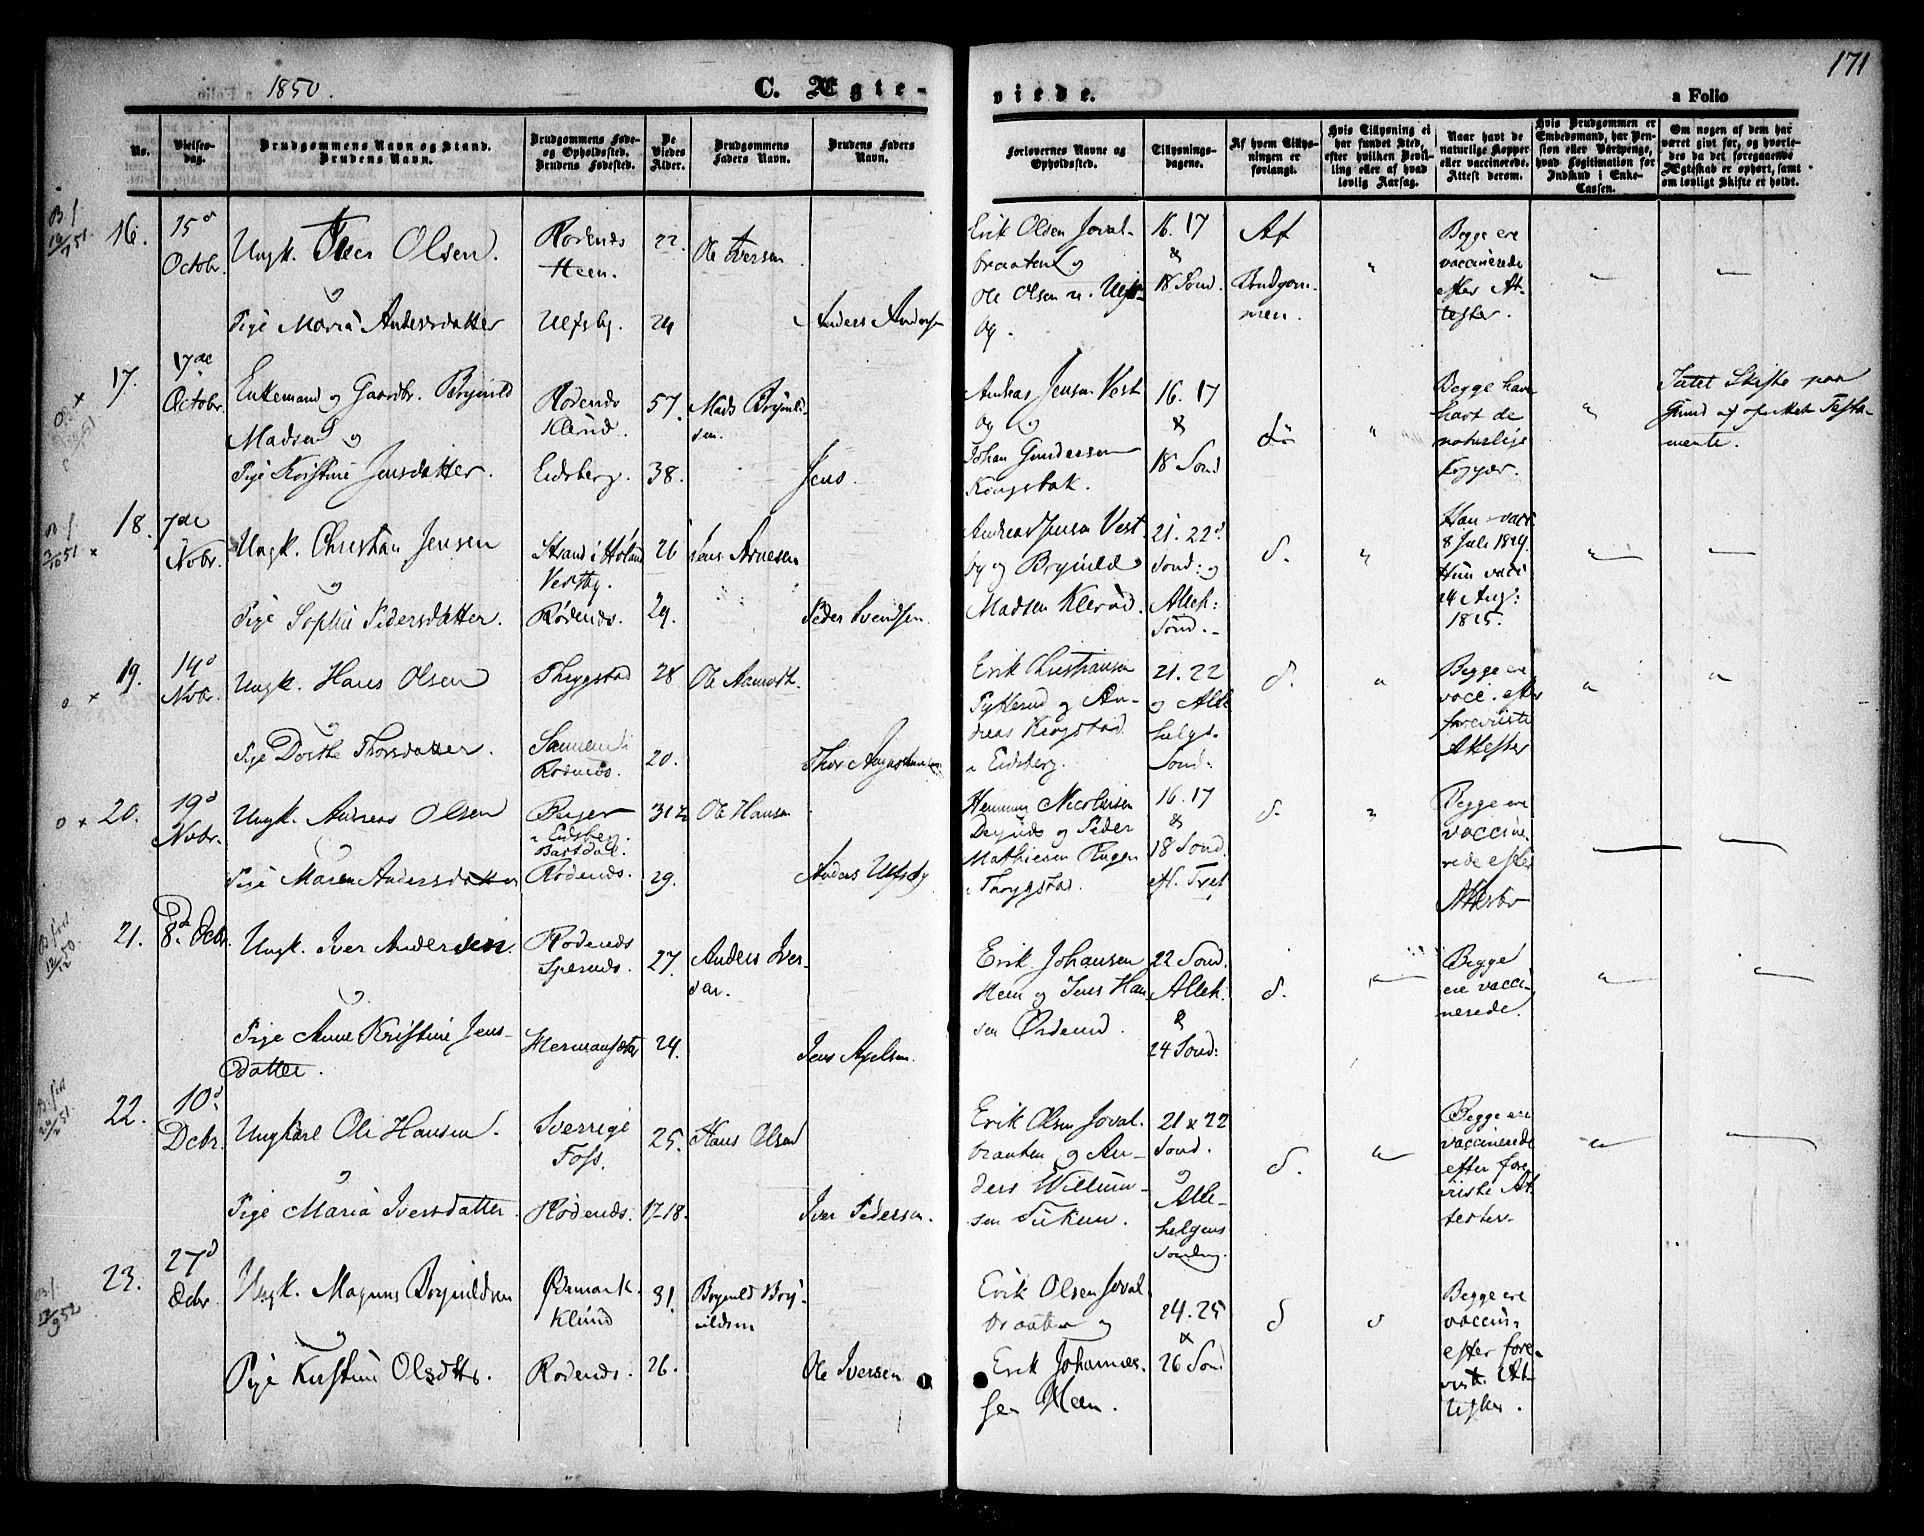 171
1850.
C. Ægte-
viede.
a Folio
No.
Vielses-
dag.
Brudgommens Navn og Stand.
Brudens Navn.
Brudgommens Føde-
og Opholdssted.
Brudens Fødested.
De
Viedes
Alder.
Brudgommens
Faders Navn.
Brudens Faders
Navn.
Forlovernes Navne og
Opholdssted.
Tillysnings-
dagene.
Af hvem Tillys-
ningen er
forlangt.
Hvis Tillysning ei
har fundet Sted,
efter hvilken Bevil-
ling eller af hvad
lovlig Aarsag.
Naar havt de
naturlige Kopper
eller vaccinerede.
Attest derom.
Hvis Brudgommen er
Embedsmand, har Pen-
sion eller Vartpenge,
hvad Legitimation for
Indskud i Enke-
Cassen.
Om nogen af dem har
været gift før, og hvorle-
des da det foregaaende
Ægteskab er ophørt, samt
om lovligt Skifte er holdt.
16.
15d
Octobr.
Ungk. Olsen.
Rødenæs
Heen.
22.
Ole Iversen
Pige Maria Andersdatter
Ulfsby.
24
Anders Andersen
Erik Olsen Joval-
braaten og
Ole Olsen
og.
16. 17
&
18 Sønd.
Af
Brudgom-
men.
Begge ere
vaccinerede
efter At-
tester.
17.
17de
Octobr.
Enkemand og Gaardbr. Brynild
Madsen og
Pige Kristine Jensdatter.
Rødenæs
Klerud.
Eidsberg.
57.
38.
Mads Brynild-
sen.
Jens.
Andreas Jensen Vest
by og
Johan Gundersen
Kongsbak.
16. 17
&
18 Sønd
do
Begge have
havt de
naturlige
Kopper.
Intet Skifte paa
Grund af oprettet Testa-
mente.
18.
7de
Nobr.
Ungk. Christian Jensen
Pige Sophie Pedersdatter.
Strand i Høland
Vestby.
Rødenæs.
26
29.
Jens Arnesen
Peder Svendsen.
Andreas Jensen Vest
by og Brynild
Madsen Klerud.
21. 22d
Sønd: og
Alleh:
Sønd.
d.
Han vacc
8 Juli 1829.
Hun vacc
24 Aug:
1825.
19.
14d
Nobr.
Ungk. Hans Olsen
Pige Dorthe Thorsdatter.
Thrygstad
Rødenæs.
28
20.
Ole Aamodt.
Thor Augustinusen
Erik Christiansen
Tykkerud og An-
dreas Krogstad
i Eidsberg.
21. 22
og Alle
helgs.
Sønd:
d.
Begge ere
vacc. efter
foreviiste
Attester
20.
19d
Nobr.
Ungk. Andreas Olsen
Pige Maren Andersdatter
Buger
i Eidsberg.
Rødenæs.
31½
29.
Ole Hansen
Anders Ulfsby
Henning Nicolaisen
og Peder
Mathiesen Rugen
i Thrygstad.
16. 17
&
18 Sønd.
d.
Begge ere
vaccine-
rede efter
Attester
21.
8d. Dcbr.
Ungk. Iver Andersen.
Pige Anne Kristine Jens-
datter.
Rødenæs
27.
24.
Anders Iver-
sen.
Jens Axelsen.
Erik Johansen
Heen og Jens Han
sen Ørderud.
22 Sønd.
Alleh.
&
24 Sønd:
d.
Begge
ere vacci-
nerede.
22.
10d.
Dcbr.
Ungkarl Ole Hansen.
Pige Maria Iversdatter.
Sverrige
Foss.
Rødenæs.
25.
17-18.
Hans Olsen
Iver Pedersen.
Erik Olsen Joval.
braaten og An-
ders Willum-
sen
21 & 22
Sønd.
og
Alle-
helgens
Søndag.
d.
Begge ere
vaccinerede
efter fore
viste At
tester.
23.
27d
Dcbr.
Ungk. Magnus Brynildsen
Pige Kirstine Olsdttr.
Ødemark.
Klund
Rødenæs.
31.
26.
Brynild Bryn-
ildsen
Ole Iversen
Erik Olsen Joval
braaten og
Erik Johannes-
sen Heen.
24. 25
&
26 Sønd
d
Begge ere
vaccin.
efter fore-
vist. At-
tester.